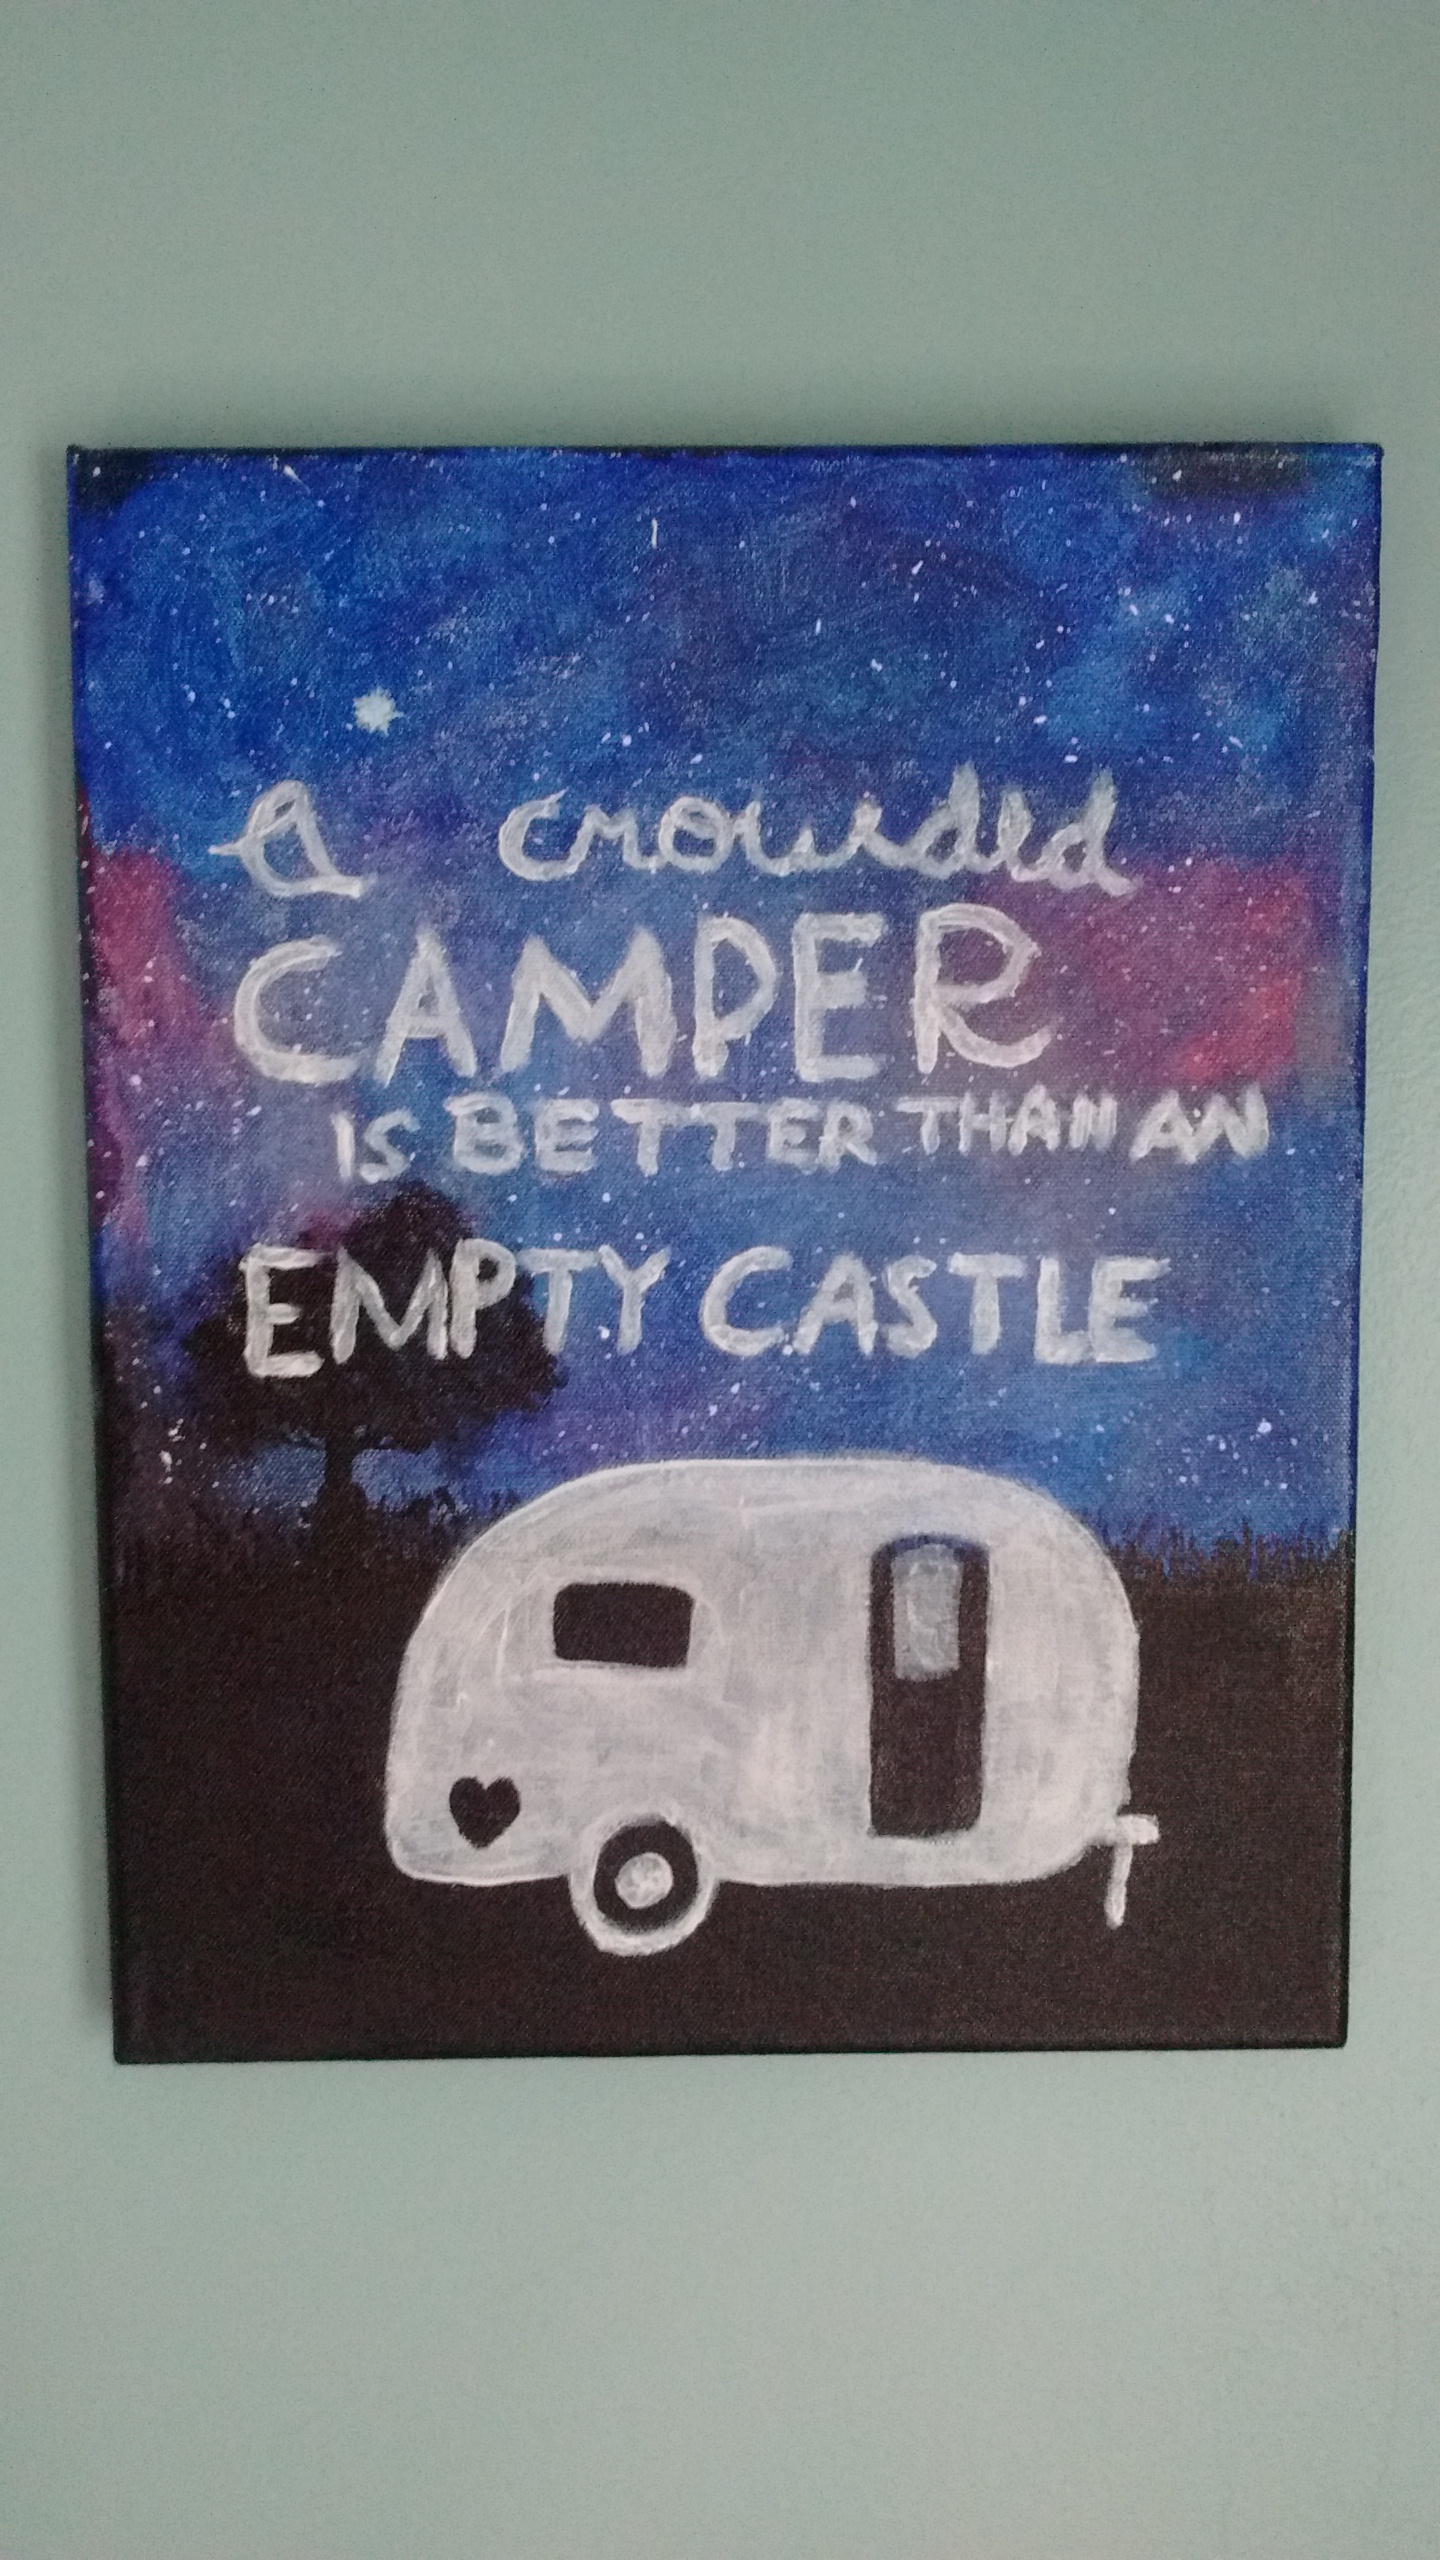 a crowded
CAMPER
IS BETTER THAN AN
EMPTY CASTLE